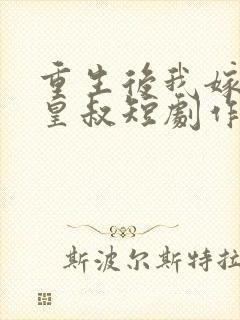 重生後我嫁
皇叔短劇作
斯波尔斯特拉